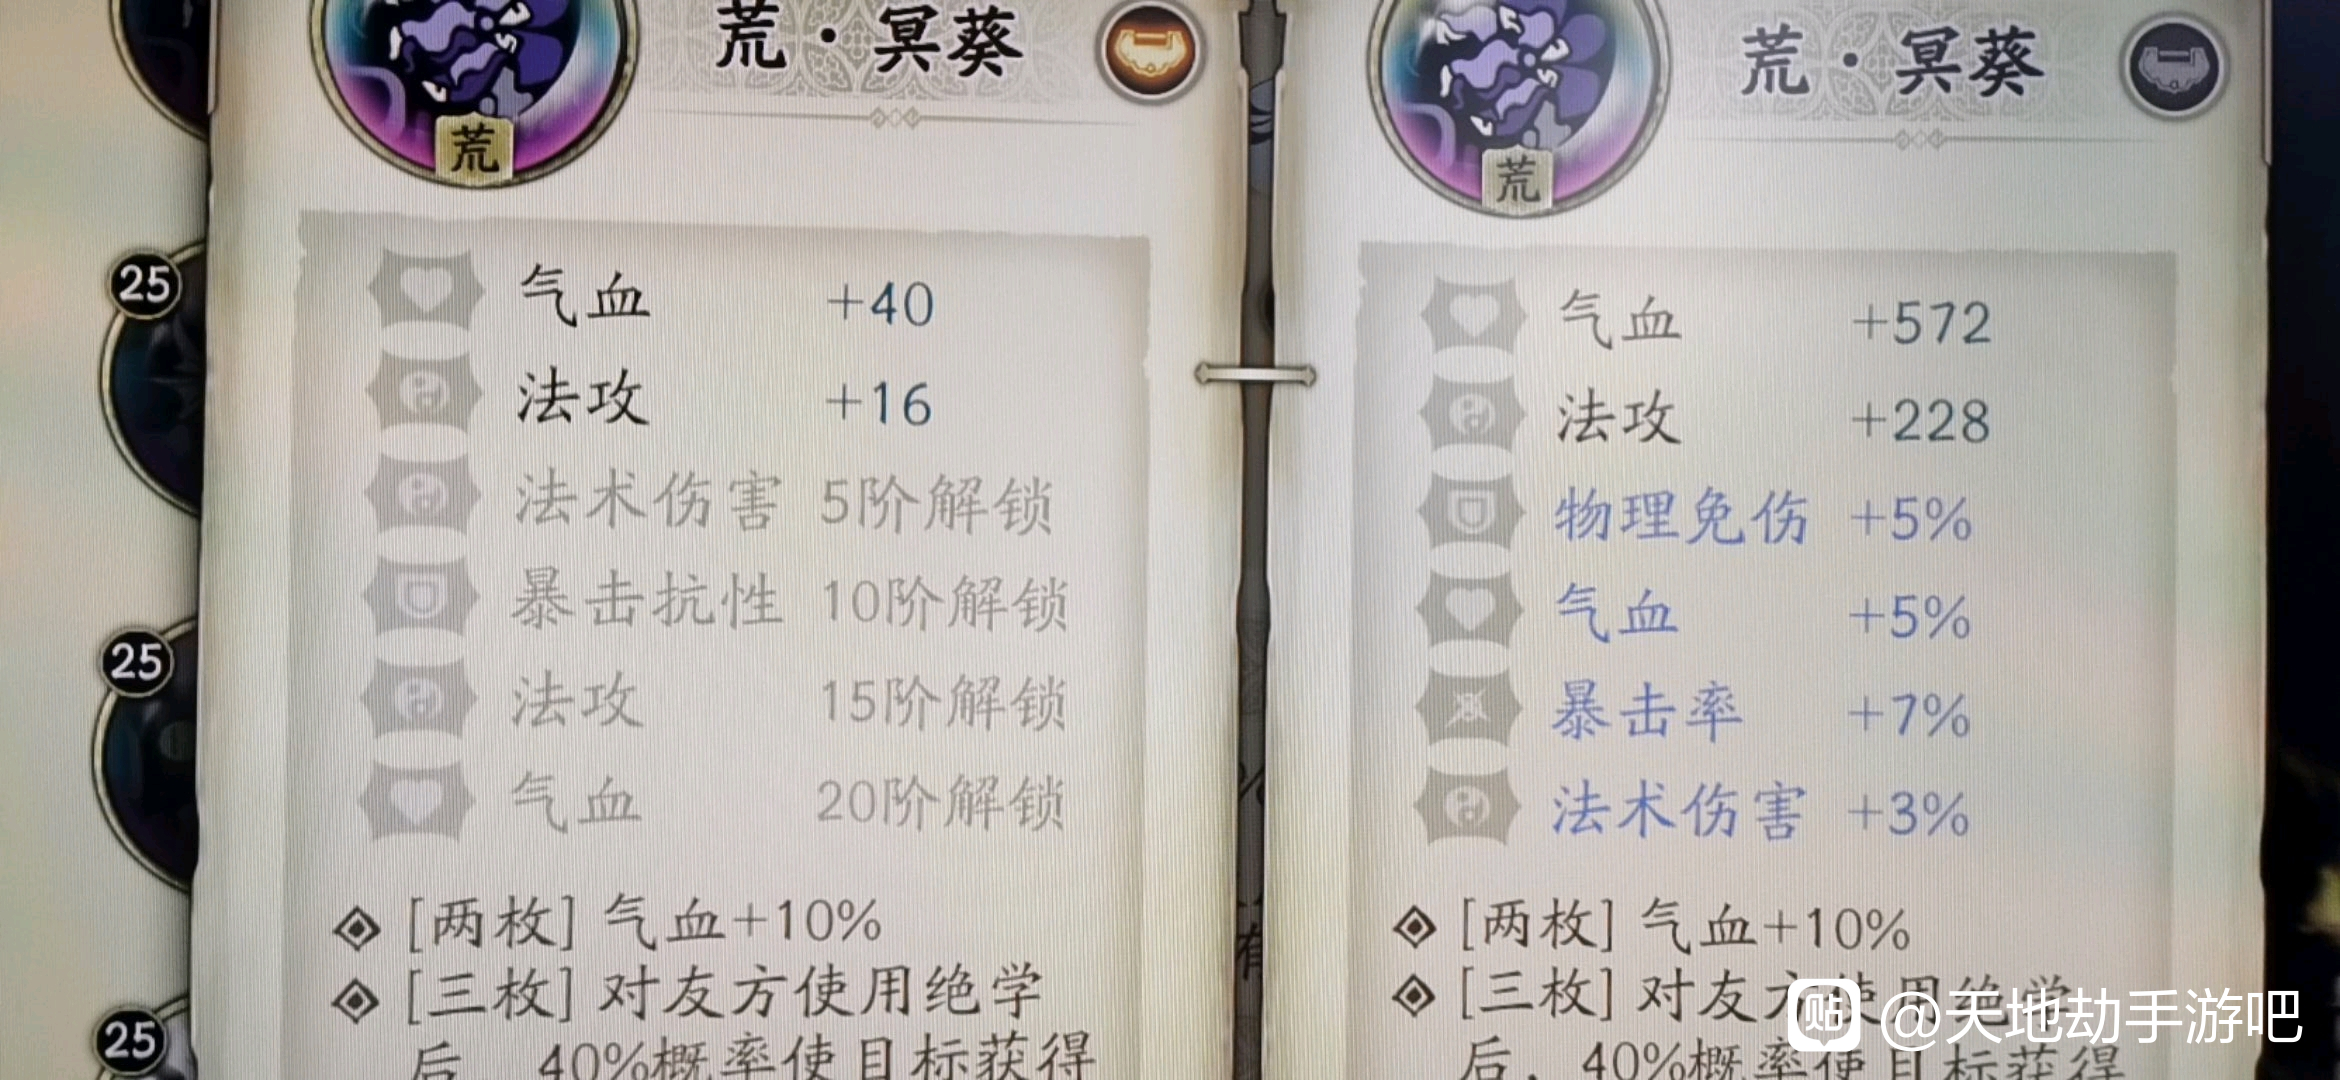 荒·冥葵
荒
25
25
25
气血 +40
法攻 +16
法术伤害 5阶解锁
暴击抗性 10阶解锁
法攻 15阶解锁
气血 20阶解锁
[两枚] 气血+10%
[三枚] 对友方使用绝学
后，40%概率使目标获得
荒·冥葵
荒
气血 +572
法攻 +228
物理免伤 +5%
气血 +5%
暴击率 +7%
法术伤害 +3%
[两枚] 气血+10%
[三枚] 对友方使用绝学
后，40%概率使目标获得
贴 @天地劫手游吧